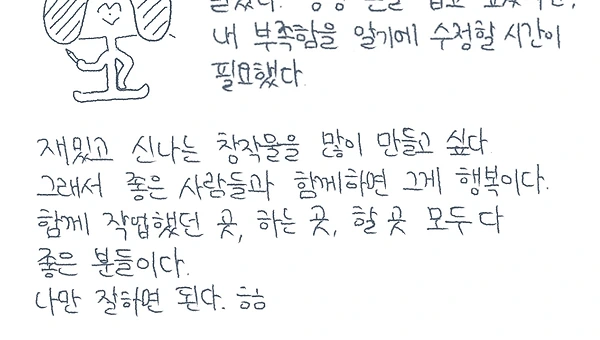 내 부족함을 알기에 수정할 시간이
필요했다.
재밌고 신나는 창작물을 많이 만들고 싶다
그래서 좋은 사람들과 함께하면 그게 행복이다.
함께 작업했던 곳, 하는 곳, 할 곳 모두 다
좋은 분들이다.
나만 잘하면 된다. 흐흐